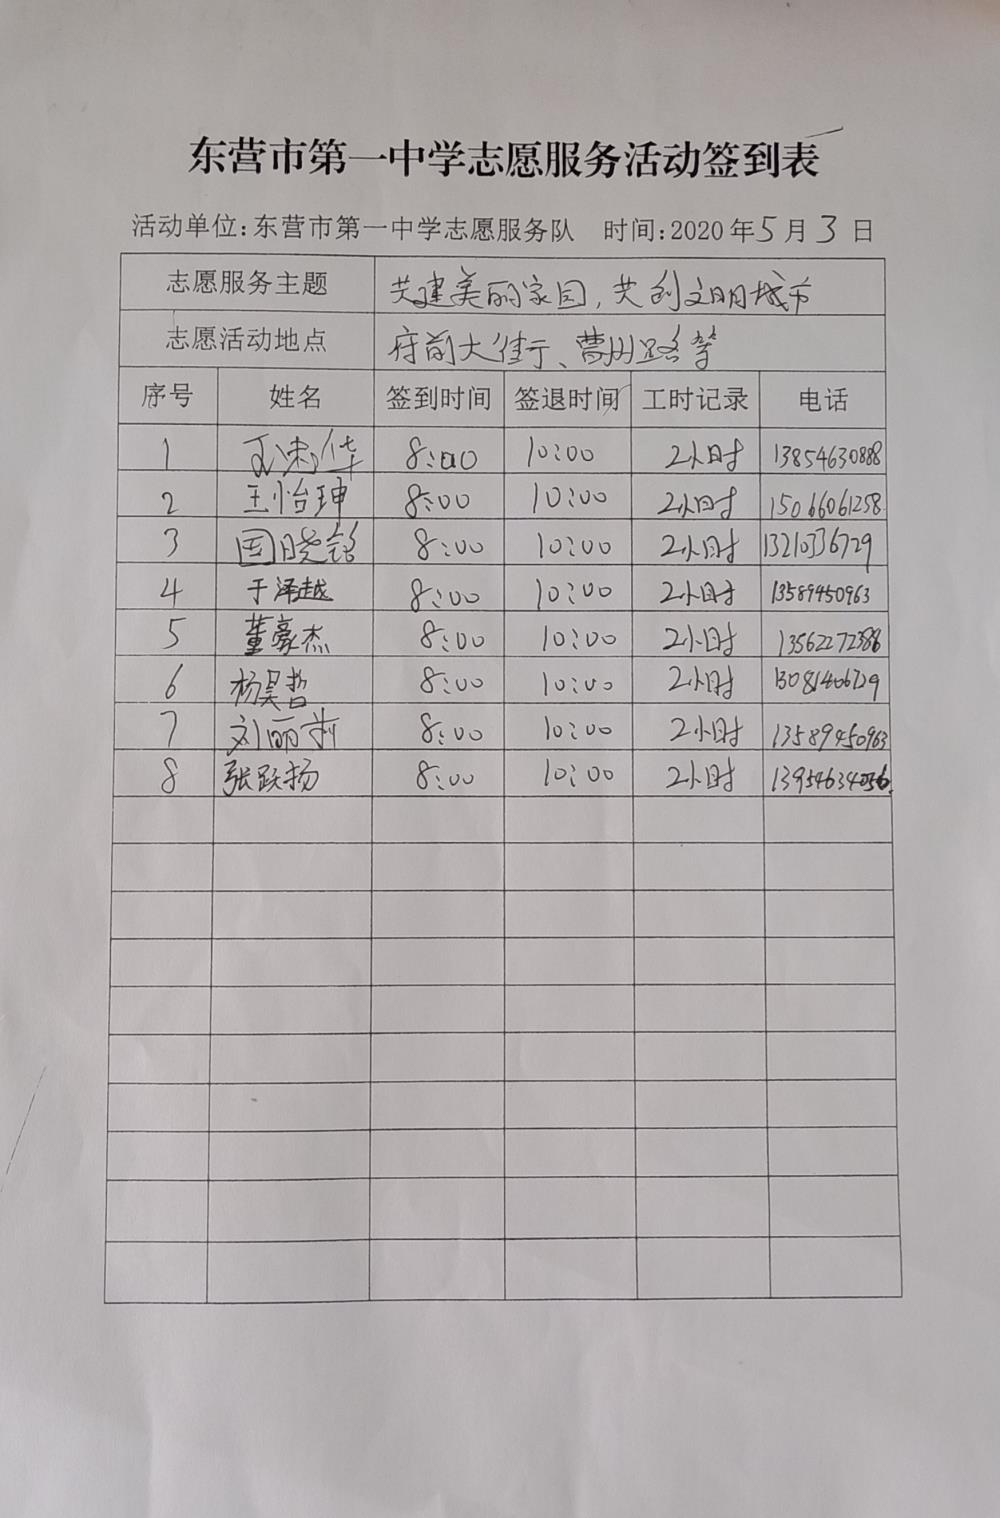 东营市第一中学志愿服务活动签到表
活动单位:东营市第一中学志愿服务队 时间:2020年5月3日
志愿服务主题 共建美丽家园,共创文明城市
志愿活动地点 府前大街、曹州路等
序号 姓名 签到时间 签退时间 工时记录 电话
1 华 8:00 10:00 2小时 13854630888
2 王怡珅 8:00 10:00 2小时 15066061258
3 国晓铭 8:00 10:00 2小时 13210336729
4 于泽越 8:00 10:00 2小时 13589450963
5 董豪杰 8:00 10:00 2小时 13562272388
6 杨昊哲 8:00 10:00 2小时
7 刘丽莉 8:00 10:00 2小时 13589450963
8 张跃扬 8:00 10:00 2小时 13954634056